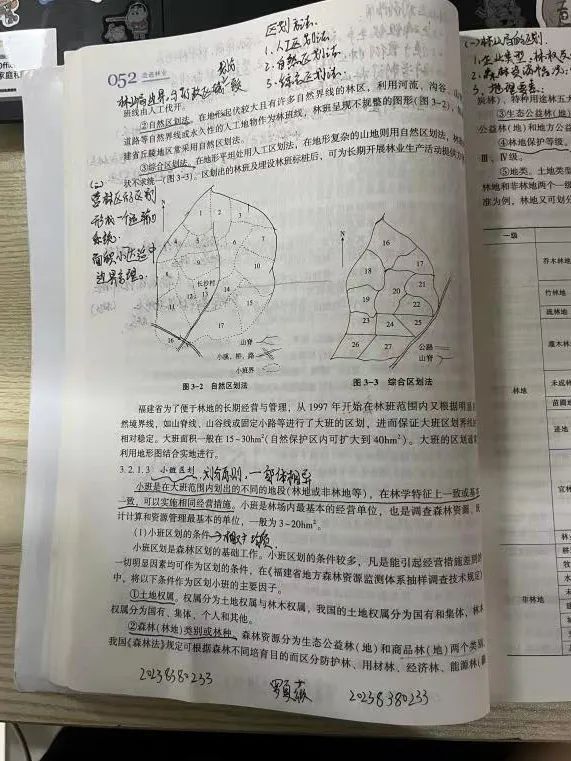 区划方法.
1.人工区划法.
2.自然区划法.
3.综合区划法.
052 造森林业
班线由人工伐开。
②自然区划法。在地形起伏较大且有许多自然界线的林区，利用河流、沟谷、山
道路等自然界线或永久性的人工地物作为林班线，林班呈现不规整的图形(图3-2)，
建省丘陵地区常采用自然区划法。
③综合区划法。在地形平坦处用人工区划，在地形复杂的山地则用自然区划法，林班
状不求统一(图3-3)。区划出的林班及埋设林班标桩后，可为长期开展林业生产活动提供方
(二)
营林区的区划
形成一个运输的
系统.
面积小适中
边界合理。
N
1
2
3
4
5
6
7
8
9
10
11
12
13
14
15
16
17
长沙村
山脊
小溪、桥、路
小班界
图3-2 自然区划法
N
16
17
18
19
20
21
22
23
24
25
26
27
公路
山脊
图3-3 综合区划法
福建省为了便于林地的长期经营与管理，从1997年开始在林班范围内又根据明显
然境界线，如山脊线、山谷线或固定小路等进行了大班的区划，进而保证大班区划界线的
相对稳定。大班面积一般在15~30hm²(自然保护区内可扩大到40hm²)。大班的区划通常
利用地形图结合实地进行。
3.2.1.3 小班区划 划分原则.
小班是在大班范围内划出的不同的地段(林地或非林地等)，在林学特征上一致或基
一致，可以实施相同经营措施。小班是林场内最基本的经营单位，也是调查森林资源、统
计计算和资源管理最基本的单位，一般为3~20hm²。
(1)小班区划的条件
小班区划是森林区划的基础工作。小班区划的条件较多，凡是能引起经营措施差别的
一切明显因素均可作为区划的条件，在《福建省地方森林资源监测体系抽样调查技术规定》
中，将以下条件作为区划小班的主要因子。
①土地权属。权属分为土地权属与林木权属，我国的土地权属分为国有和集体，林木
权属分为国有、集体、个人和其他。
②森林(林地)类别或林种。森林资源分为生态公益林(地)和商品林(地)两个类别
我国《森林法》规定可根据森林不同培育目的而区分防护林、用材林、经济林、能源林(
20238380233
20238380233
(一)林场的区划.
炭林)、特种用途林五大
③生态公益
公益林(地)和地方公益
④林地保护等级。
Ⅲ、Ⅳ级。
⑤地类。土地类型
林地和非林地两个一级
准为例，林地又可划分
一级
林地
非林地
乔木林地
竹林地
疏林地
灌木林
未成林
苗圃地
迹地
宜林